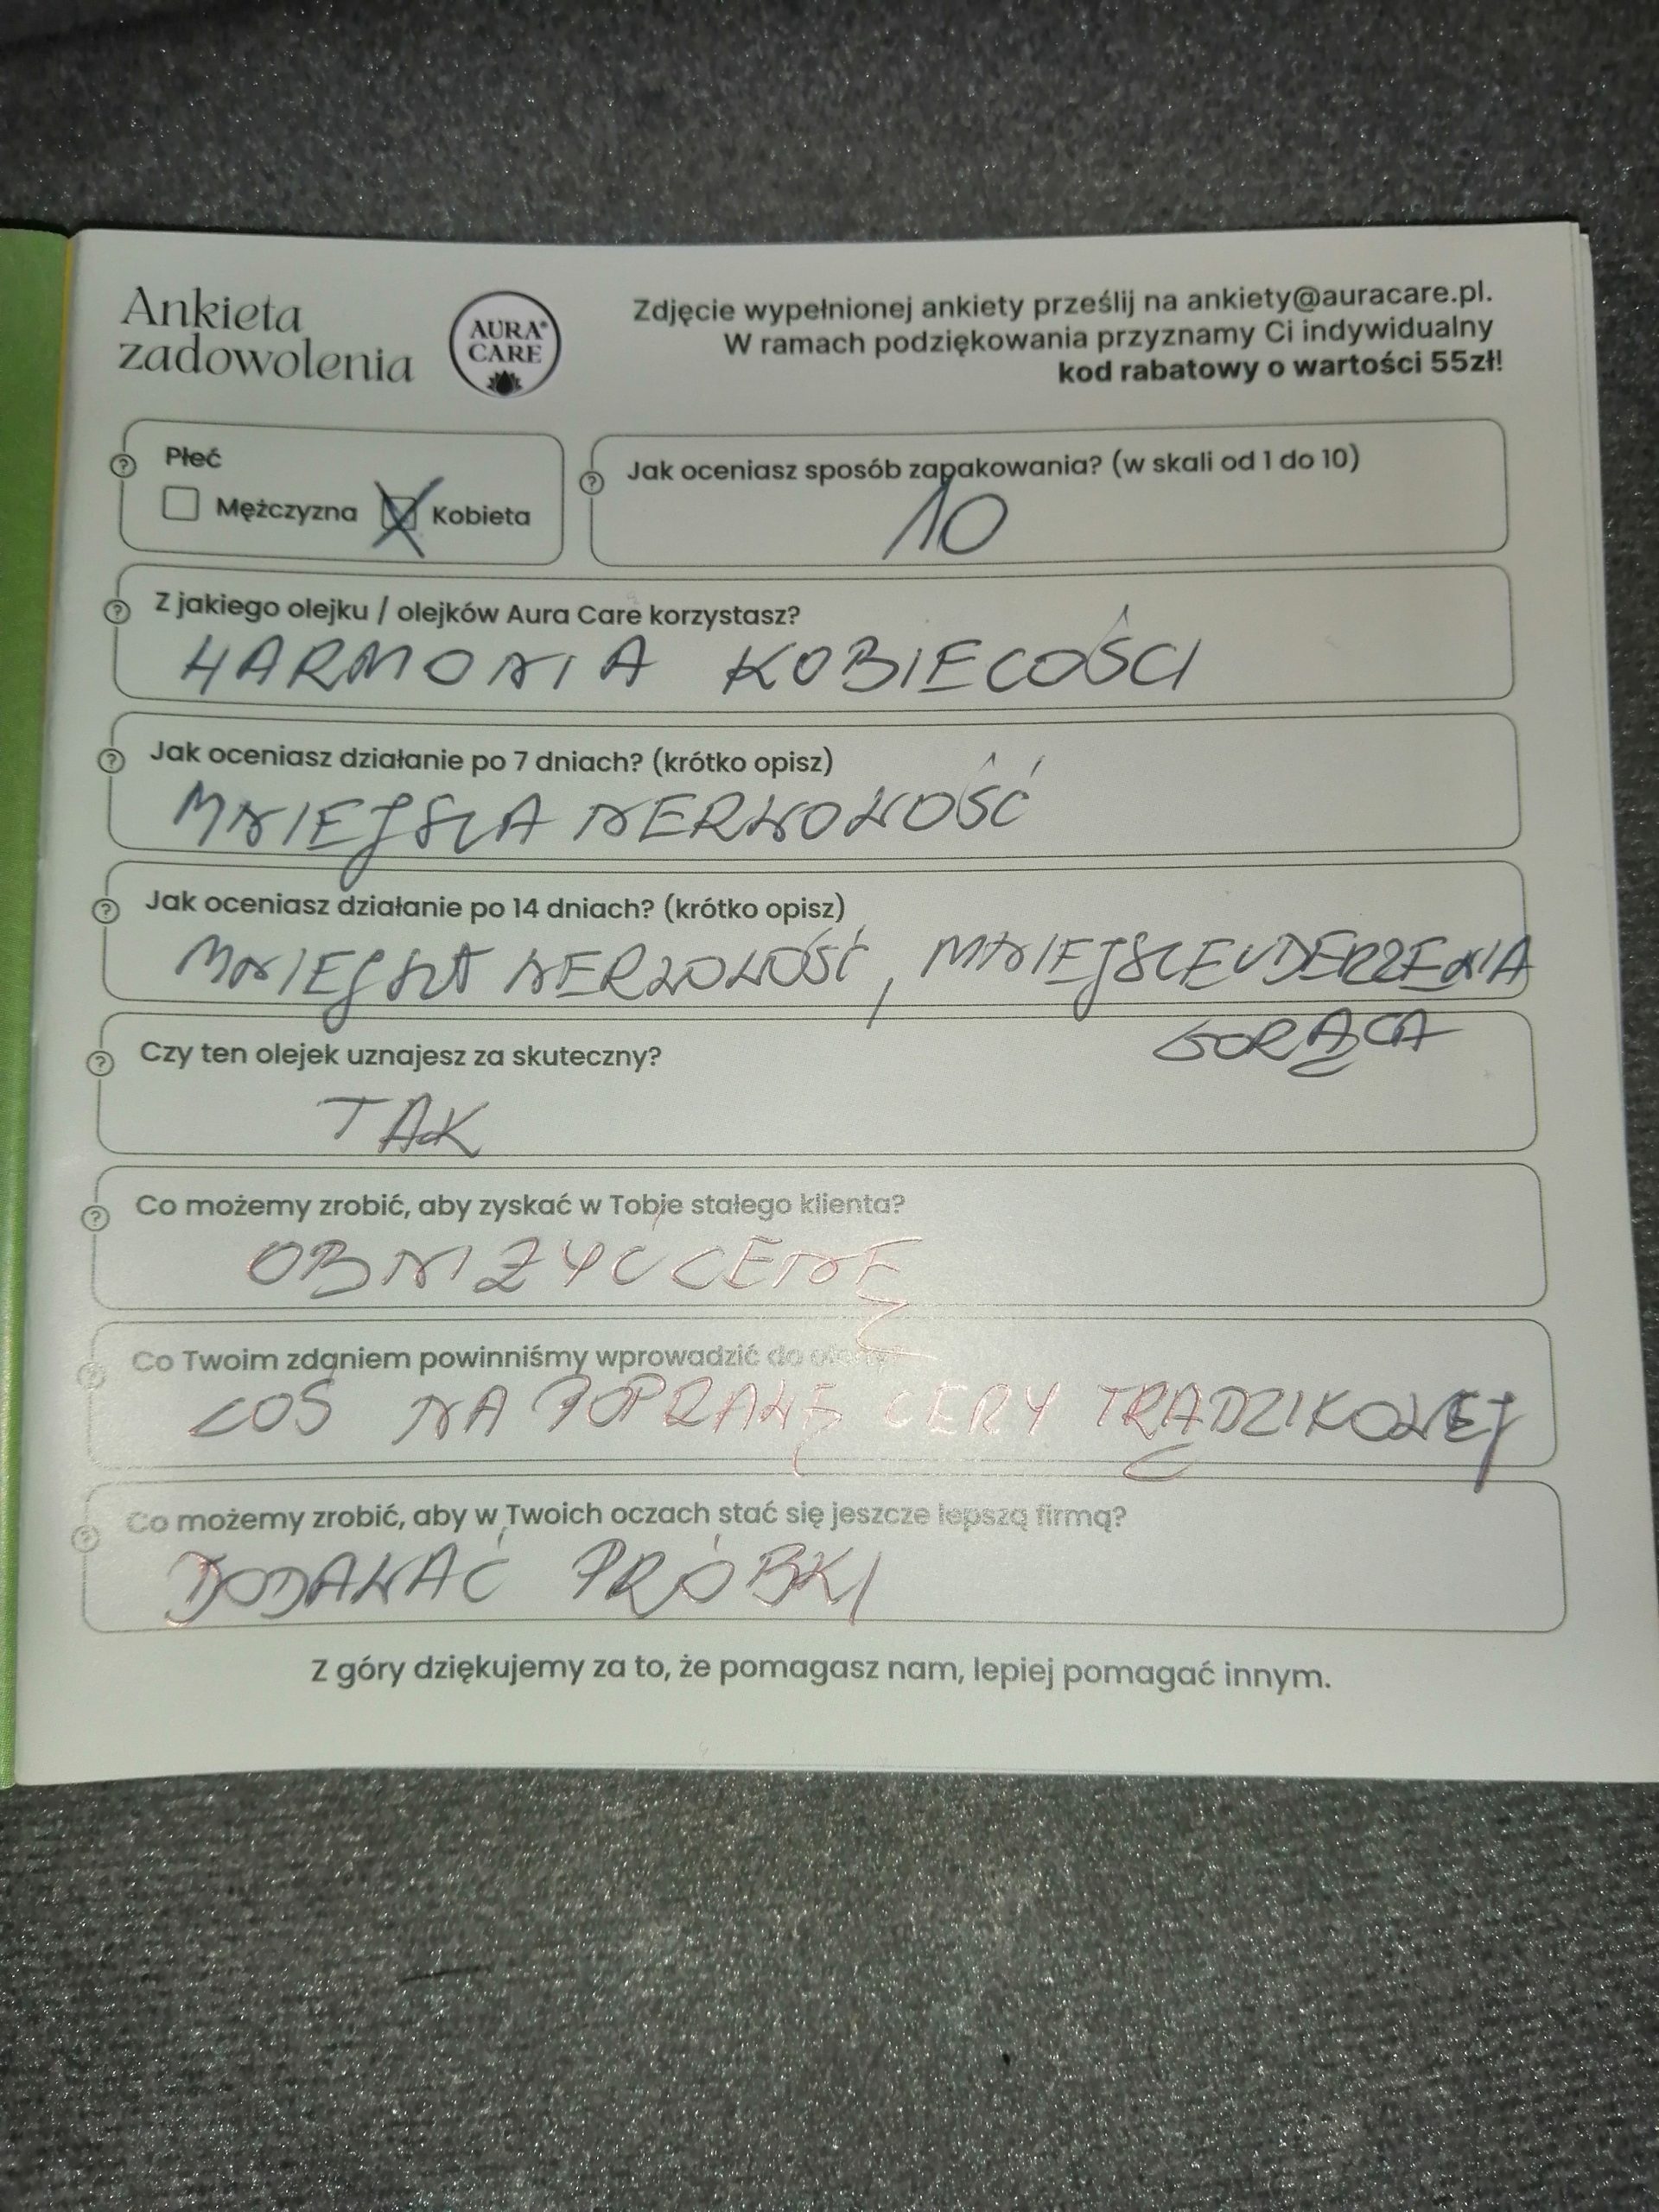 Ankieta
zadowolenia
AURA®
CARE
Zdjęcie wypełnionej ankiety prześlij na ankiety@auracare.pl.
W ramach podziękowania przyznamy Ci indywidualny
kod rabatowy o wartości 55zł!
Płeć
Mężczyzna Kobieta
Jak oceniasz sposób zapakowania? (w skali od 1 do 10)
10
Z jakiego olejku / olejków Aura Care korzystasz?
HARMONIA KOBIECOŚCI
Jak oceniasz działanie po 7 dniach? (krótko opisz)
MNIEJSZA NERWOWOŚĆ
Jak oceniasz działanie po 14 dniach? (krótko opisz)
MNIEJSZA NERWOWOŚĆ, MNIEJSZE UDERZENIA
GORĄCA
Czy ten olejek uznajesz za skuteczny?
TAK
Co możemy zrobić, aby zyskać w Tobie stałego klienta?
OBNIZYĆ CENĘ
Co Twoim zdaniem powinniśmy wprowadzić do oferty?
COŚ NA POPRAWĘ CERY TRĄDZIKOWEJ
Co możemy zrobić, aby w Twoich oczach stać się jeszcze lepszą firmą?
DODAWAĆ PRÓBKI
Z góry dziękujemy za to, że pomagasz nam, lepiej pomagać innym.